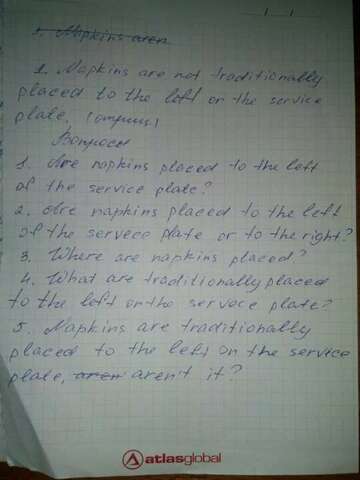 1. Napkins aren
1. Napkins are not traditionally
placed to the left or the service
plate. (отриц.)
Вопросы
1. Are napkins placed to the left
of the service plate?
2. Are napkins placed to the left
of the servece plate or to the right?
3. Where are napkins placed?
4. What are traditionally placed
to the left or the servece plate?
5. Napkins are traditionally
placed to the left on the service
plate, aren aren't it?
atlasglobal